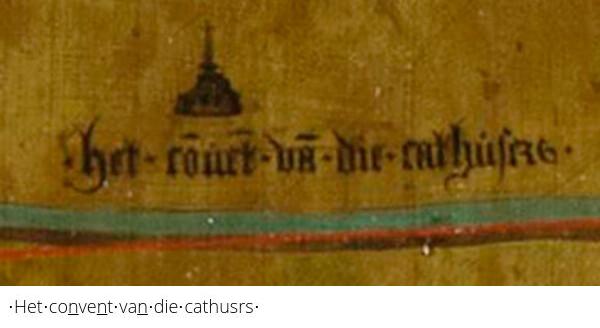 ·het·cōuēt·vā·die·cathúſrs·
·Het·convent·van·die·cathusrs·